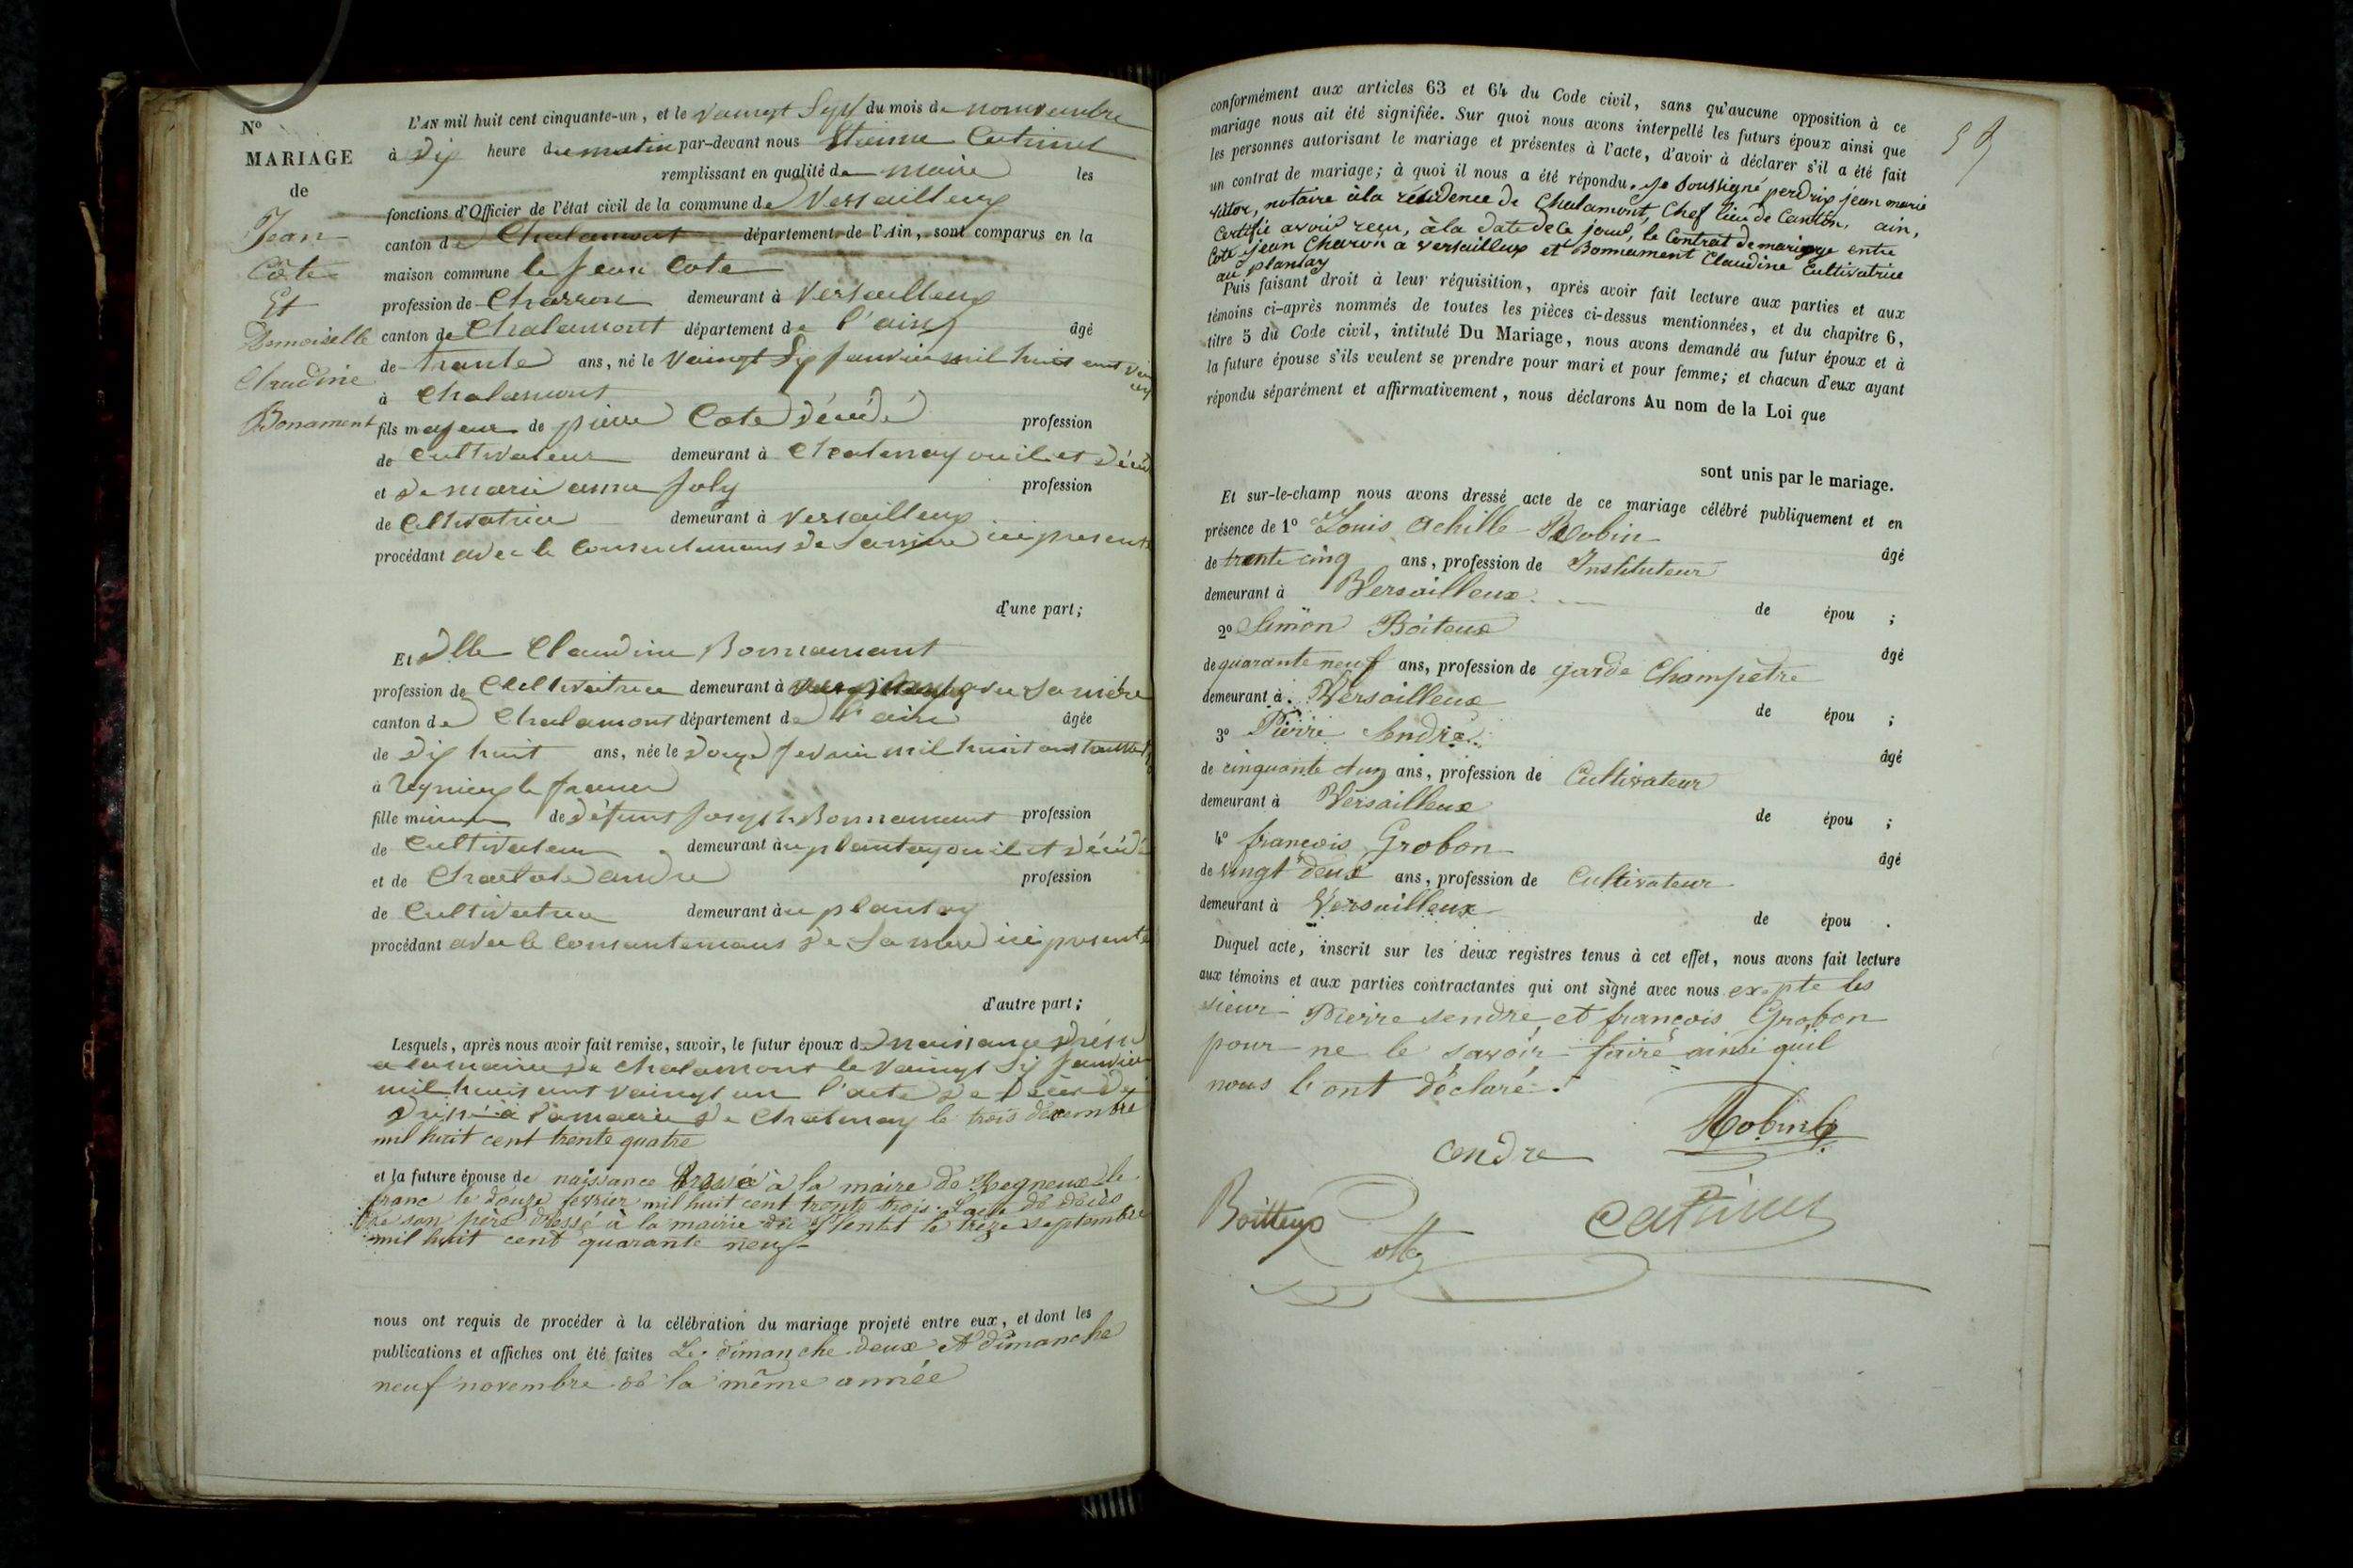 N°
MARIAGE
de
Jean
Côte
Et
Demoiselle
Claudine
Bonament
L'AN mil huit cent cinquante-un, et le vaingt Sept du mois de nomvembre
à dix heure du matin par-devant nous Etienne Catinet
remplissant en qualité de maire les
fonctions d'Officier de l'état civil de la commune de Versailleux
canton de Chalamont département de l'Ain, sont comparus en la
maison commune le jean Cote
profession de Charron demeurant à Versailleux
canton de Chalamont département de l'ain âgé
de trante ans, né le vaingt Six janvier mil huit cent
à Chalamont
fils majeur de pierre Cote décédé profession
de Cultivateur demeurant à Chatenay ou il et décédé
et de marie anne joly profession
de Celtivatrice demeurant à Versailleux
procédant avec le consentemant de Sa mère ici presente
d'une part;
Et dlle Claudine Bonnamant
profession de Celtivatrice demeurant à avec Sa mère
canton de Chalamont département de l'ain âgée
de dix huit ans, née le douze fevrier mil huit cent
à Reynieux le franc
fille mineure de défunt joseph Bonnamant profession
de Cultivateur demeurant au plantay ou il et décédé
et de andre profession
de Cultivatrice demeurant au plantay
procédant avec le consantemans de Sa mère ici presente
d'autre part;
Lesquels, après nous avoir fait remise, savoir, le futur époux de naissance dréssé
a la mairie de Chalamont le vaingt Six janvier
mil huit cent vaingt un l'acte de Décès de
dréssé a la mairie de Chatenay le trois décembre
mil huit cent trente quatre
et la future épouse de naissance dressé à la maire de Regneux le
franc le douze fevrier mil huit cent trente trois. L'acte de décès
de son père dressé à la mairie du Plantet le treize septembre
mil huit cent quarante neuf
nous ont requis de procéder à la célébration du mariage projeté entre eux, et dont les
publications et affiches ont été faites Le dimanche deux Et dimanche
neuf novembre de la même année
conformément aux articles 63 et 64 du Code civil, sans qu'aucune opposition à ce
mariage nous ait été signifiée. Sur quoi nous avons interpellé les futurs époux ainsi que
les personnes autorisant le mariage et présentes à l'acte, d'avoir à déclarer s'il a été fait
un contrat de mariage; à quoi il nous a été répondu. Je Soussigné perdrix jean marie
victor, notaire à la résidence de Chalamont, Chef lieu de Canton, ain,
Certifie avoir reçu, à la date de Ce jour, le Contrat de mariage entre
Cote jean Charon a versailleux et Bonnament Claudine Cultivatrice
au plantay
Puis faisant droit à leur réquisition, après avoir fait lecture aux parties et aux
témoins ci-après nommés de toutes les pièces ci-dessus mentionnées, et du chapitre 6,
titre 5 du Code civil, intitulé Du Mariage, nous avons demandé au futur époux et à
la future épouse s'ils veulent se prendre pour mari et pour femme; et chacun d'eux ayant
répondu séparément et affirmativement, nous déclarons Au nom de la Loi que
sont unis par le mariage.
Et sur-le-champ nous avons dressé acte de ce mariage célébré publiquement et en
présence de 1° Louis Achille Robin
âgé
de trente cinq ans, profession de Instituteur
demeurant à Versailleux de épou ;
2° Simon Boiteux
âgé
de quarante neuf ans, profession de garde Champetre
demeurant à Versailleux de épou ;
3° Pierre Sendre
âgé
de cinquante et un ans, profession de Cultivateur
demeurant à Versailleux de épou ;
4° françois Grobon
âgé
de vingt deux ans, profession de Cultivateur
demeurant à Versailleux de épou .
Duquel acte, inscrit sur les deux registres tenus à cet effet, nous avons fait lecture
aux témoins et aux parties contractantes qui ont signé avec nous exepte les
sieur Pierre sendre et françois Grobon
pour ne le savoir faire ainsi quil
nous l'ont déclaré.
Robin
Cendre
Boitteux
Cotte
Catinet